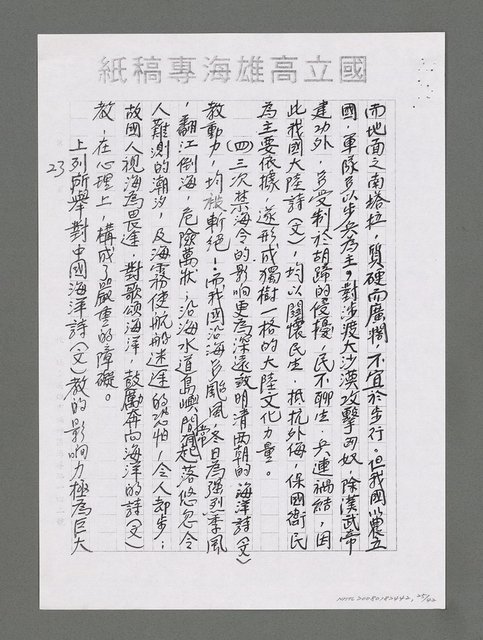 國立高雄海專稿紙
而地面之南塔拉，質硬而廣闊，不宜於步行。但我國以農立
國，軍隊多以步兵為主，對涉渡大沙漠攻擊匈奴，除漢武帝
建功外，多受制於胡蹄的侵擾，民不聊生，兵連禍結，因
此我國大陸詩(文)，均以關懷民生，抵抗外侮，保國衛民
為主要依據，遂形成獨樹一格的大陸文化力量。
(四)三次禁海令的影響更為深遠致明清兩朝的海洋詩(文)
教動力，均被斬絕！而我國沿海多颱風，冬日為強烈季風
，翻江倒海，危險萬狀，沿海水道島嶼間常起落悠忽令
人難測的潮汐，及海霧使航船迷途的恐怕，令人卻步；
故國人視海為畏途，對歌頌海洋，鼓勵奔向海洋的詩(文)
教，在心理上，構成了嚴重的障礙。
上列所舉對中國海洋詩(文)教的影響力極為巨大
23
NMTL20080182442, 25/42